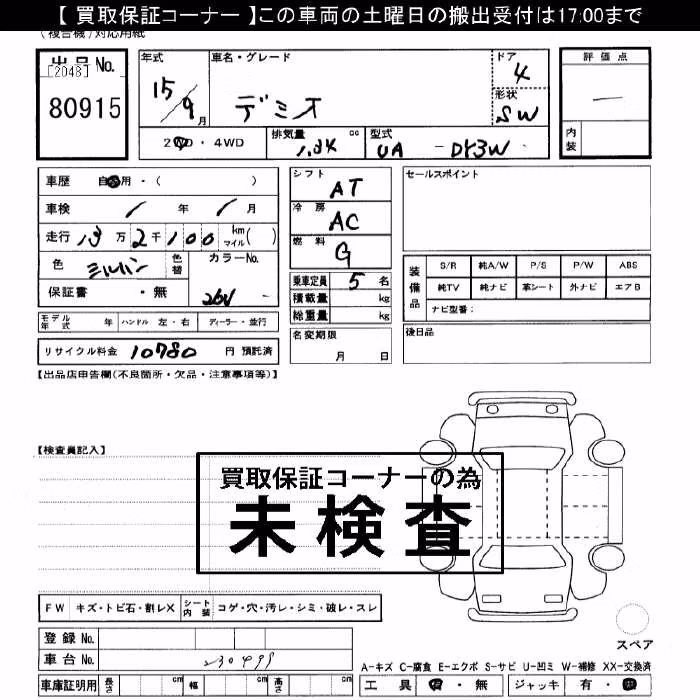 【 買取保証コーナー 】この車両の土曜日の搬出受付は17:00まで
(複合機)対応用紙
出品No.
[2048]
80915
年式 15/9月
車名・グレード デミオ
ドア 4
形状 SW
2WD・4WD
排気量 cc
型式 UA - DY3W
評価点
内装
車歴 自家用・( )
車検 / 年 / 月
走行 13万2千100 km マイル ( )
色 シルバー 色替
カラーNo. 26V
保証書 ・無
シフト AT
冷房 AC
燃料 G
乗車定員 5 名
積載量 kg
総重量 kg
セールスポイント
装備品
S/R 純A/W P/S P/W ABS
純TV 純ナビ 革シート 外ナビ エアB
ナビ型番:
モデル年式 年 ハンドル 左・右 ディーラー・並行
名変期限 月 日
後日品
リサイクル料金 10780 円 預託済
【出品店申告欄(不良箇所・欠品・注意事項等)】
【検査員記入】
買取保証コーナーの為
未検査
FW キズ・トビ石・割レX シート内装 コゲ・穴・汚レ・シミ・破レ・スレ
登録 No.
車台 No. 230499
車庫証明用 長さ cm 幅 cm 高さ cm
スペア
A-キズ C-腐食 E-エクボ S-サビ U-凹ミ W-補修 XX-交換済
工具 ・無 ジャッキ 有・